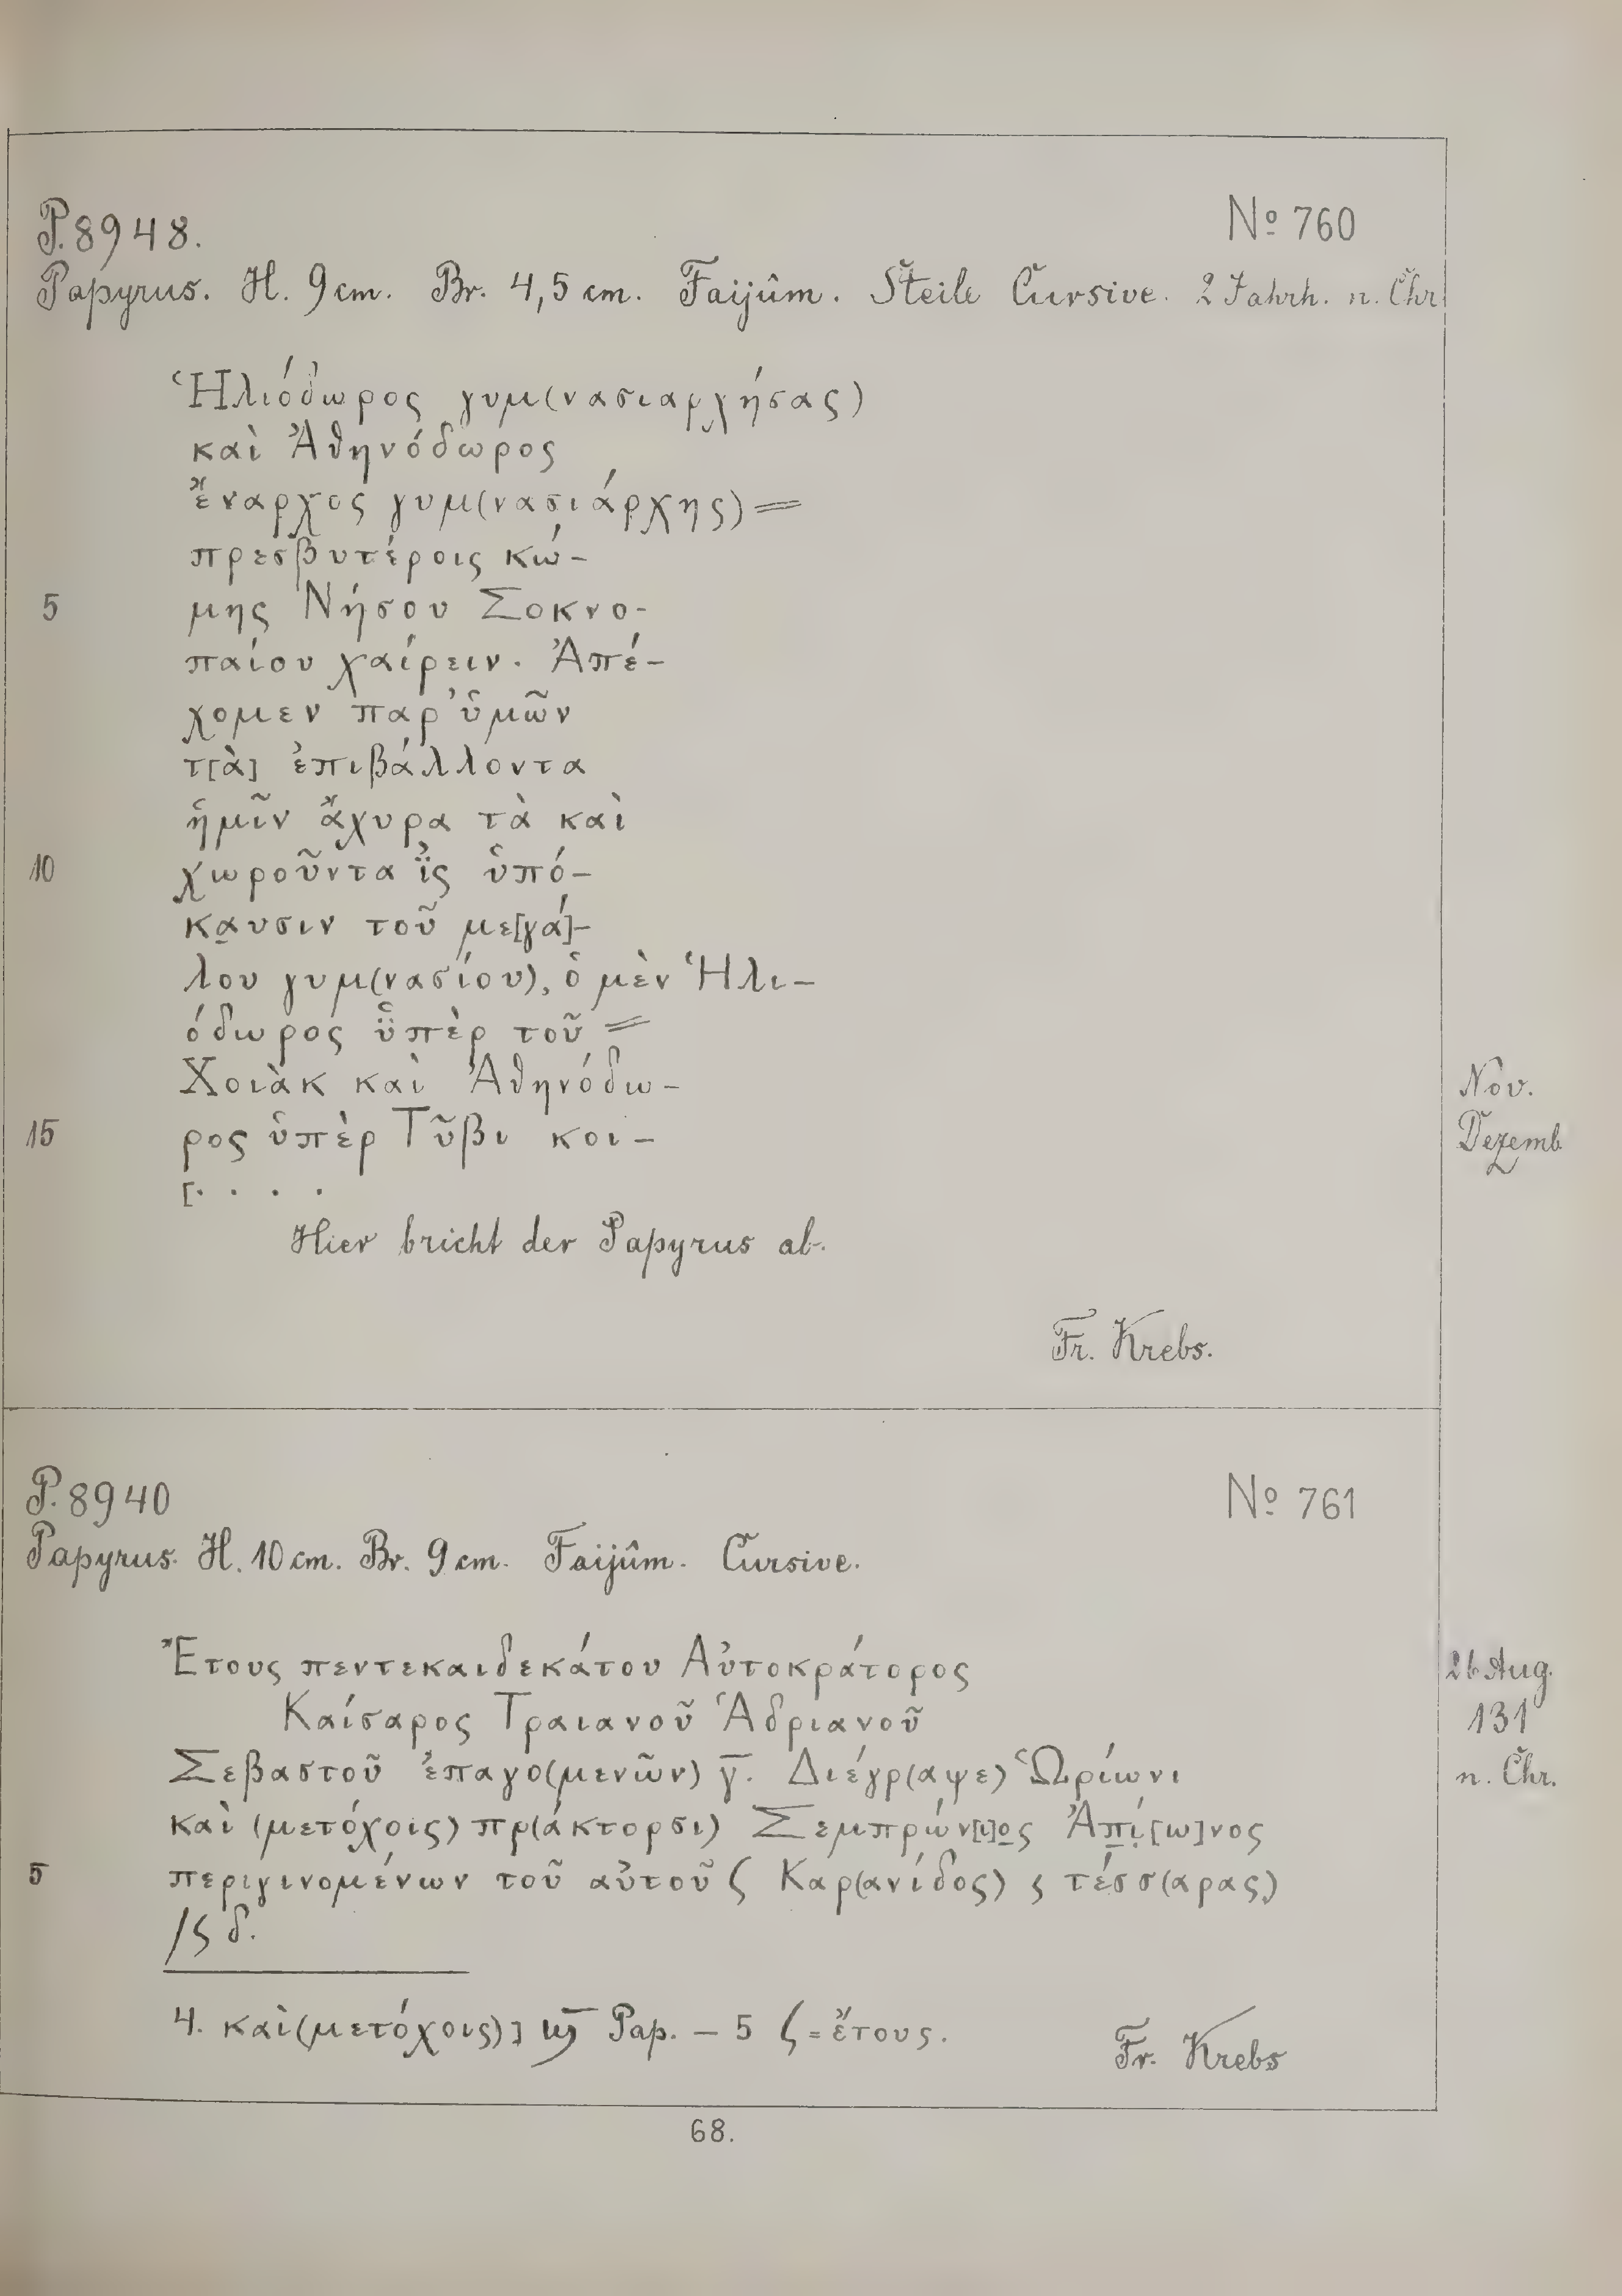 P. 8948.
No 760
Papyrus. H. 9 cm. Br. 4,5 cm. Faijûm. Steile Cursive. 2 Jahrh. n. Chr.
Ἡλιόδωρος γυμ(νασιαρχήσας)
καὶ Ἀθηνόδωρος
ἔναρχος γυμ(νασιάρχης) =
πρεσβυτέροις κώ-
5 μης Νήσου Σοκνο-
παίου χαίρειν. Ἀπέ-
χομεν παρ' ὑμῶν
τ[ὰ] ἐπιβάλλοντα
ἡμῖν ἄχυρα τὰ καὶ
10 χωροῦντα ἲς ὑπό-
κα̲υσιν τοῦ με[γά]-
λου γυμ(νασίου), ὁ μὲν Ἡλι-
όδωρος ὑ̈πὲρ τοῦ =
Χοιὰκ καὶ Ἀθηνόδω- Nov.
15 ρος ὑπὲρ Τῦβι κοι- Dezemb.
[. . . .
Hier bricht der Papyrus ab.
Fr. Krebs.
P. 8940
No 761
Papyrus. H. 10 cm. Br. 9 cm. Faijûm. Cursive.
Ἔτους πεντεκαιδεκάτου Αὐτοκράτορος 26 Aug.
Καίσαρος Τραιανοῦ Ἁδριανοῦ 131
Σεβαστοῦ ἐπαγο(μενῶν) γ̅. Διέγρ(αψε) Ὡρίωνι n. Chr.
καὶ (μετόχοις) πρ(άκτορσι) Σεμπρών[ι]ο̲ς Ἀπ̲ί̣[ω]νος
5 περιγινομένων τοῦ αὐτοῦ ζ Καρ(ανίδος) ς τέσσ(αρας)
/ς δ.
4. καὶ (μετόχοις)] Pap. – 5 ζ = ἔτους.
Fr. Krebs
68.